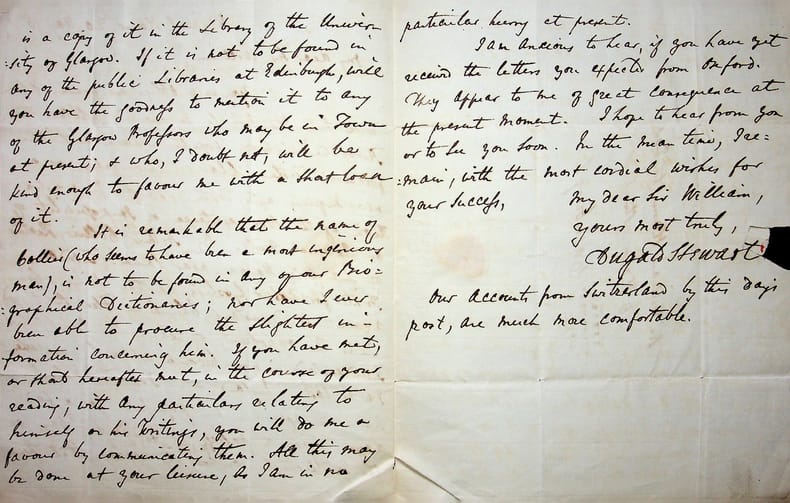 is a copy of it in the Library of the Univer
:sity of Glasgow. If it is not to be found in
any of the public Libraries at Edinburgh, will
you have the goodness to mention it to any
of the Glasgow Professors who may be in Town
at present; & who, I doubt not, will be
kind enough to favour me with a short loan
of it.
It is remarkable that the name of
Collier (who seems to have been a most ingenious
man), is not to be found in any of our Bio=
:graphical Dictionaries; nor have I ever
been able to procure the slightest in=
:formation concerning him. If you have met,
or shall hereafter meet, in the course of your
reading, with any particulars relating to
himself or his Writings, you will do me a
favour by communicating them. All this may
be done at your leisure, as I am in no
particular hurry at present.
I am anxious to hear, if you have yet
received the letters you expected from Oxford.
They appear to me of great consequence at
the present moment. I hope to hear from you
or to see you soon. In the mean time, I re=
:main, with the most cordial wishes for
your success,
My dear Sir William,
yours most truly,
Dugald Stewart
Our accounts from Switzerland by this days
post, are much more comfortable.